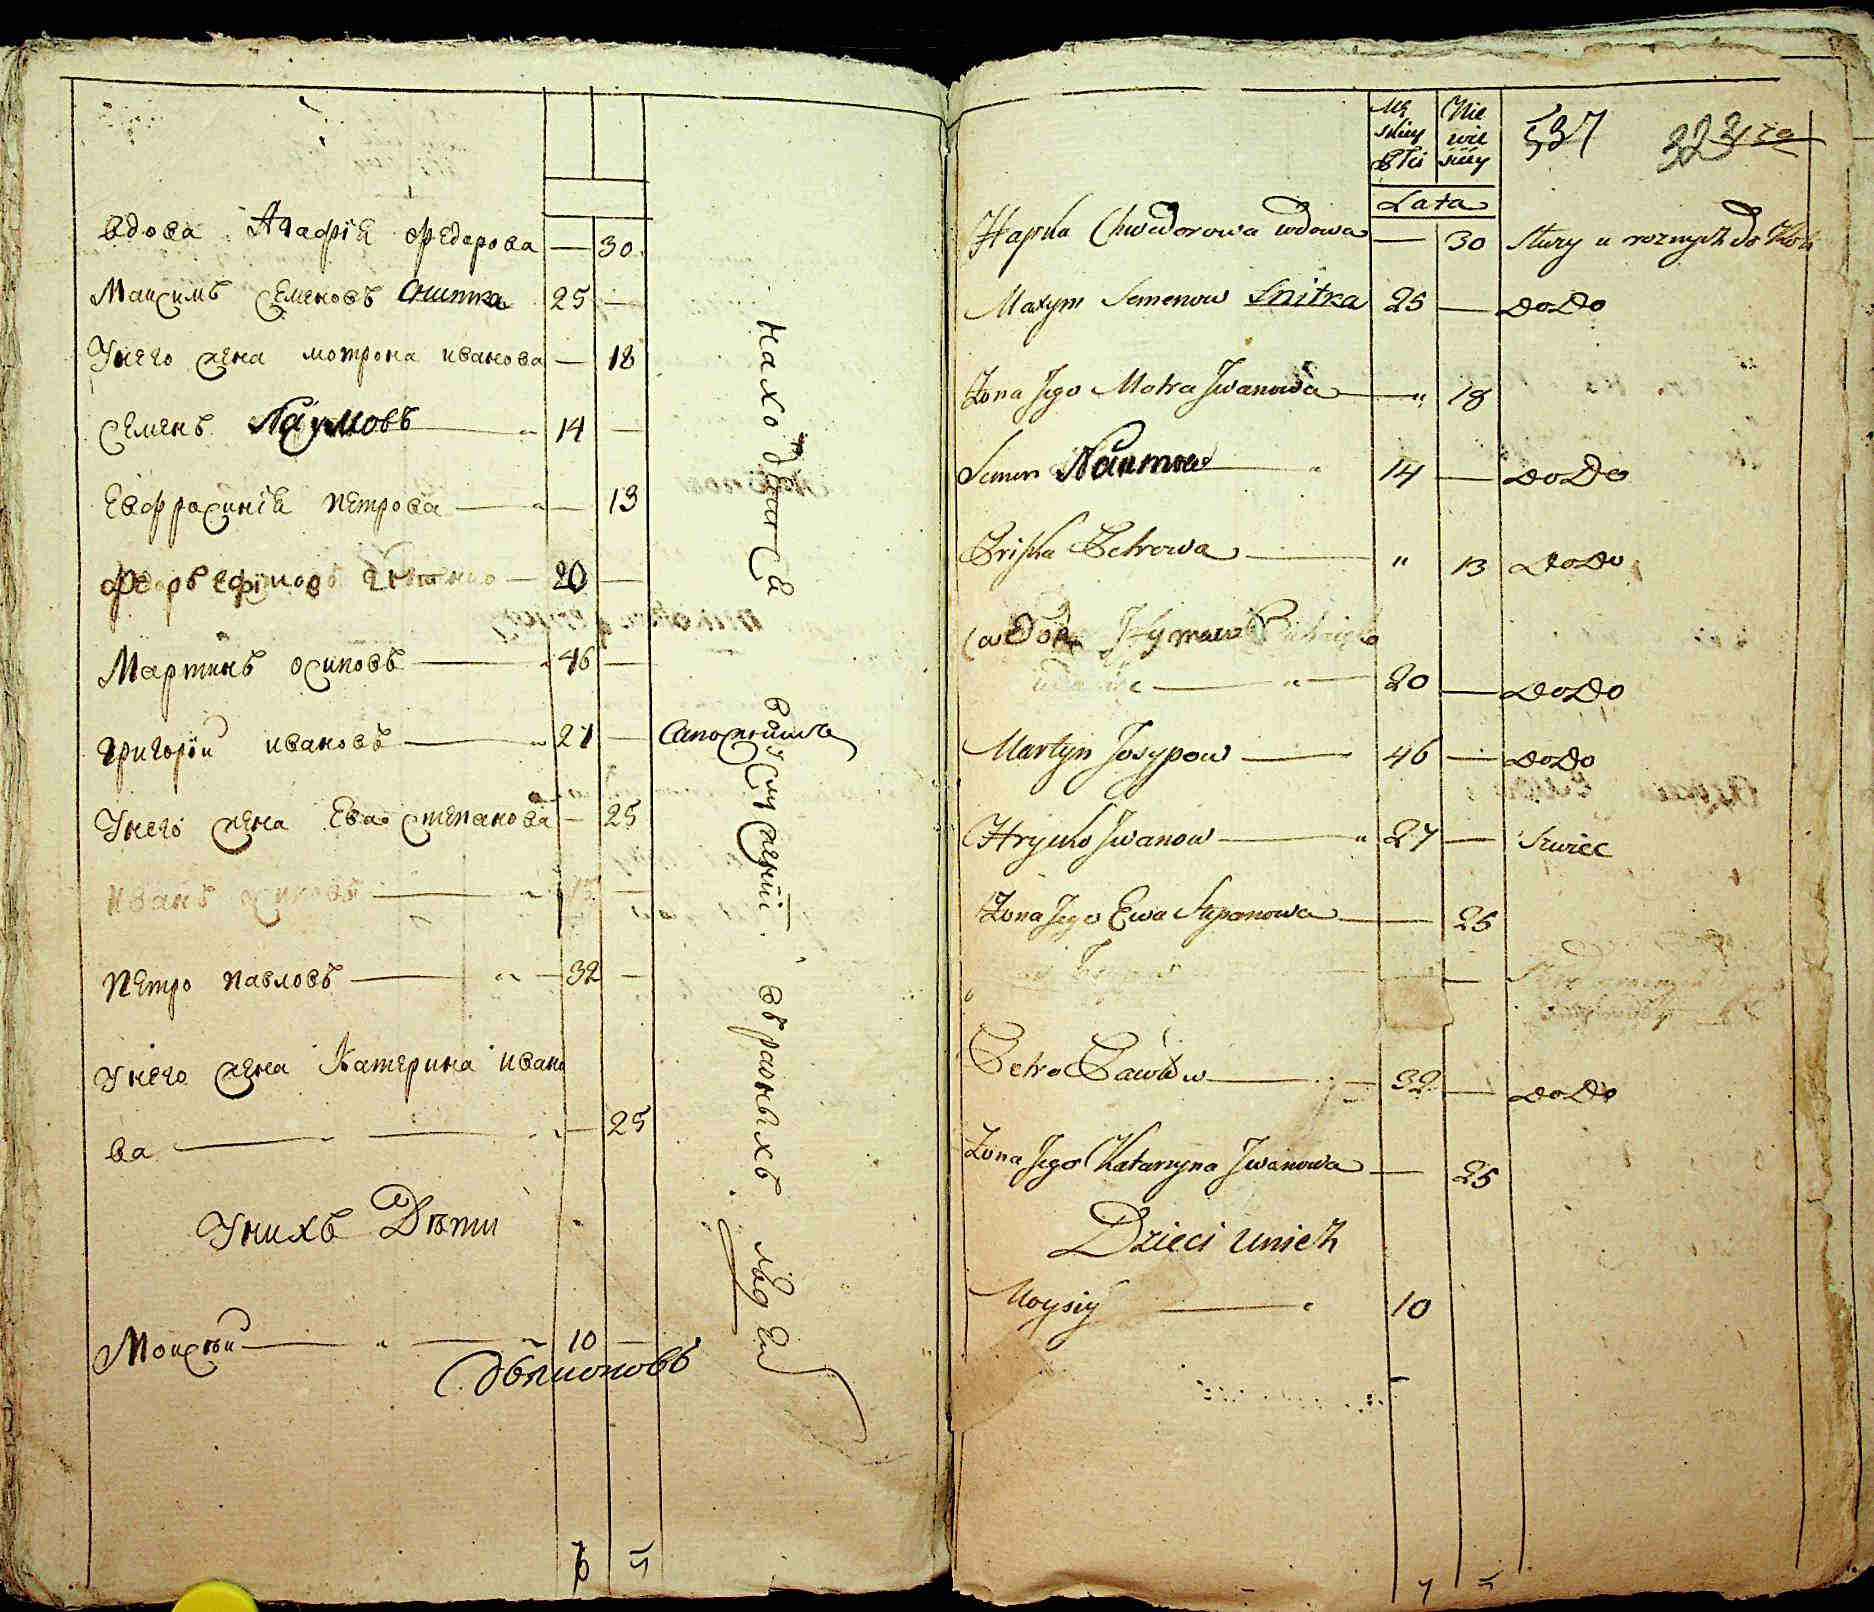 вдова Агафїя Федорова — 30
Максимъ Семеновъ Снитка 25 —
У него жена мотрона иванова — 18
Семенъ Наумовъ — 14 —
Евфросинїя Петрова — 13
Федоръ Ефимовъ — 20 —
Мартинъ осиповъ — 46 —
Григорїи ивановъ — 27 — Сапожникъ
У него жена Ева степанова — 25
иванъ осиповъ — 15 —
Петро павловъ — 32 —
У него жена Катерина ивано
ва — 25
У нихъ Дѣти
Моисѣй — 10 —
Находятся в услужении въ разныхъ людей
5
Mę skiey Płci
Nie wie sciey
Lata
537
323
Hapka Chwedorowa wdowa — 30 Służy u roznych do
Maxym Semenow Snitka 25 — do Do
Żona Jego Motra Jwanowa — " 18
Semen Naumow — 14 — do Do
Pryska Petrowa — " 13 do Do
20 — do Do
Martyn Josypow — 46 — do Do
Hryćko Jwanow — 27 — Szwiec
Żona Jego Ewa Stepanowa — 25
Petro Pawłow — 32 — do Do
Żona Jego Katarzyna Jwanowa — 25
Dzieci u nich
Moysiy — 10
7 5